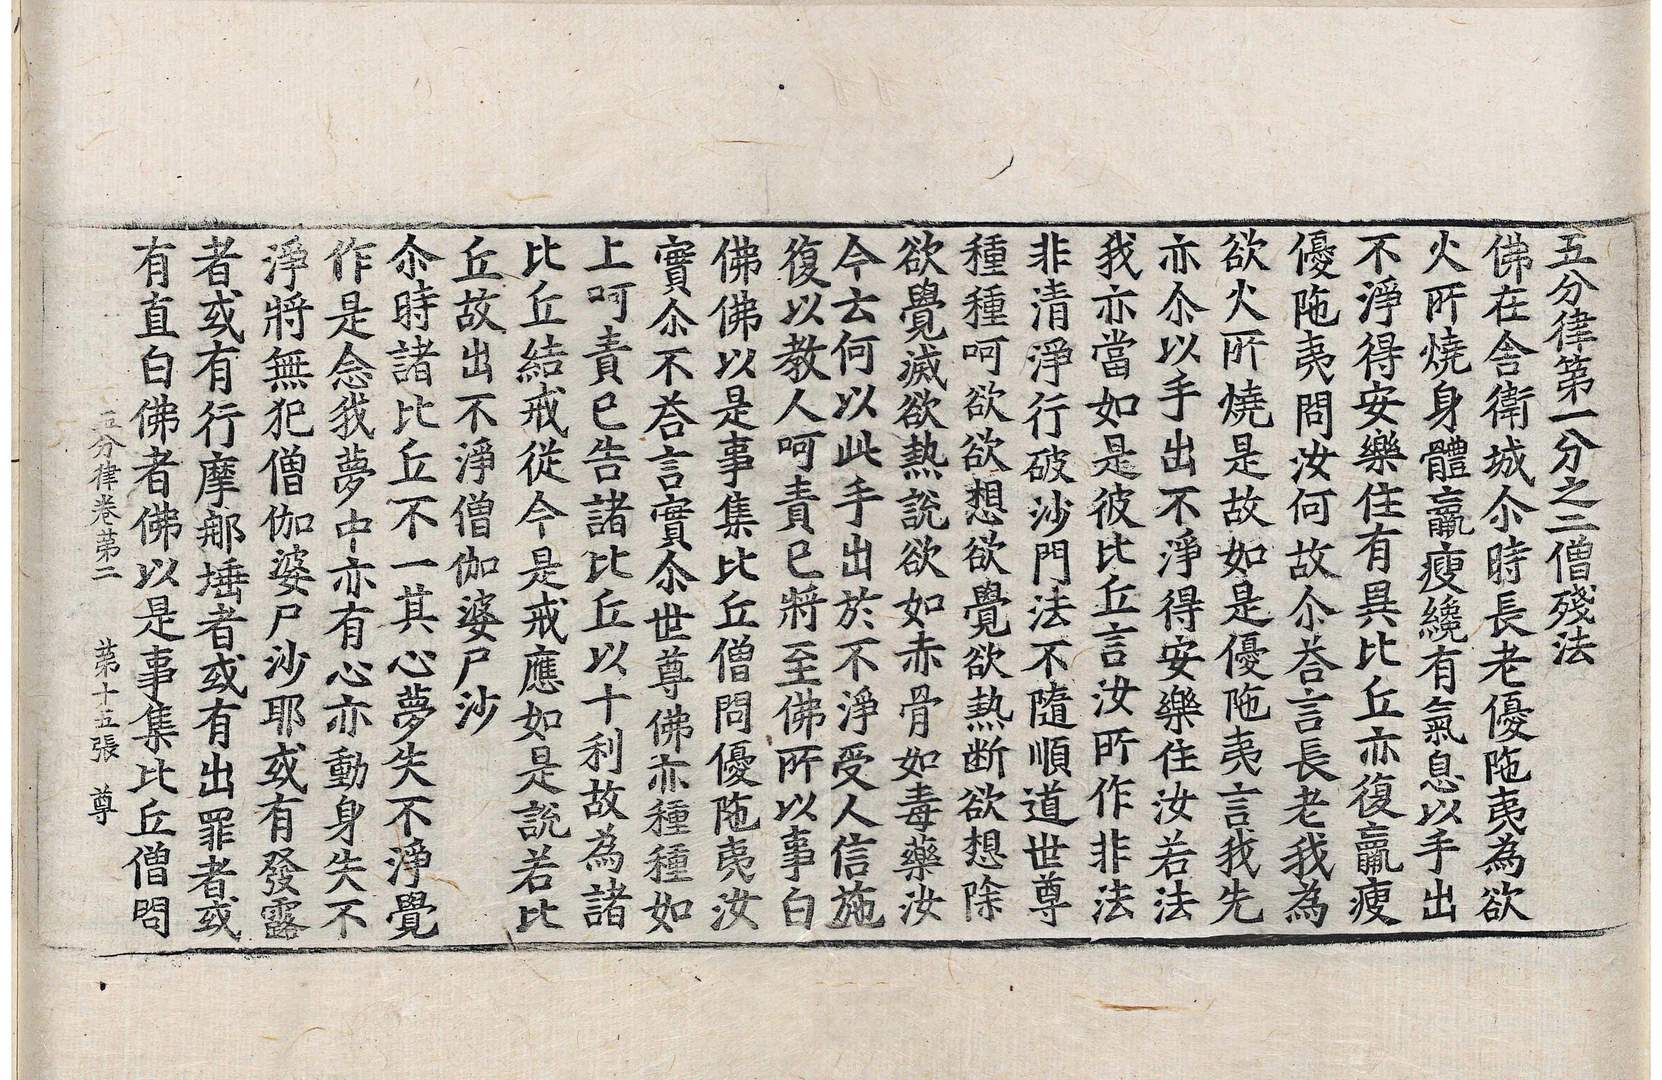 五分律第一分之二僧殘法
佛在舍衛城尒時長老優陁夷為欲
火所燒身體羸瘦纔有氣息以手出
不淨得安樂住有異比丘亦復羸瘦
優陁夷問汝何故尒荅言長老我為
欲火所燒是故如是優陁夷言我先
亦尒以手出不淨得安樂住汝若法
我亦當如是彼比丘言汝所作非法
非清淨行破沙門法不隨順道世尊
種種呵欲欲想欲覺欲熱断欲想除
欲覺滅欲熱說欲如赤骨如毒藥汝
今去何以此手出於不淨受人信施
復以教人呵責已將至佛所以事白
佛佛以是事集比丘僧問優陁夷汝
實尒不荅言實尒世尊佛亦種種如
上呵責已告諸比丘以十利故為諸
比丘結戒從今是戒應如是說若比
丘故出不淨僧伽婆尸沙
尒時諸比丘不一其心夢失不淨覺
作是念我夢中亦有心亦動身失不
淨將無犯僧伽婆尸沙耶或有發露
者或有行摩那埵者或有出罪者或
有直白佛者佛以是事集比丘僧問
五分律卷苐二 苐十五張 尊